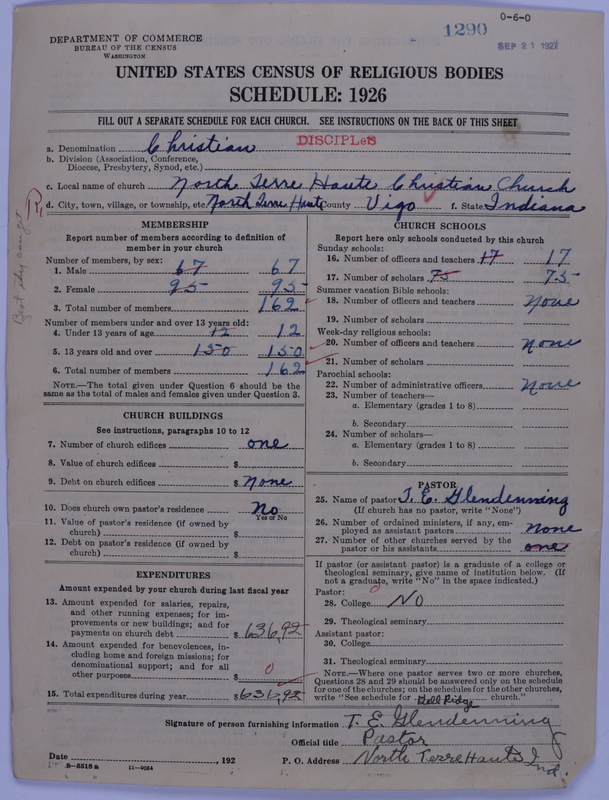 1290
0-6-0
SEP 21 192
DEPARTMENT OF COMMERCE
BUREAU OF THE CENSUS
WASHINGTON
UNITED STATES CENSUS OF RELIGIOUS BODIES
SCHEDULE: 1926
FILL OUT A SEPARATE SCHEDULE FOR EACH CHURCH. SEE INSTRUCTIONS ON THE BACK OF THIS SHEET
a. Denomination Christian DISCIPLES
b. Division (Association, Conference,
Diocese, Presbytery, Synod, etc.)
c. Local name of church North Terre Haute Christian Church
d. City, town, village, or township, etc. North Terre Haute County Vigo f. State Indiana
Best they can get
MEMBERSHIP
Report number of members according to definition of
member in your church
Number of members, by sex:
1. Male 67 67
2. Female 95 95
3. Total number of members 162
Number of members under and over 13 years old:
4. Under 13 years of age 12 12
5. 13 years old and over 150 150
6. Total number of members 162
NOTE.—The total given under Question 6 should be the
same as the total of males and females given under Question 3.
CHURCH BUILDINGS
See instructions, paragraphs 10 to 12
7. Number of church edifices one
8. Value of church edifices $
9. Debt on church edifices $ None
10. Does church own pastor's residence No
Yes or No
11. Value of pastor's residence (if owned by
church) $
12. Debt on pastor's residence (if owned by
church) $
EXPENDITURES
Amount expended by your church during last fiscal year
13. Amount expended for salaries, repairs,
and other running expenses; for im-
provements or new buildings; and for
payments on church debt $ 636,92
14. Amount expended for benevolences, in-
cluding home and foreign missions; for
denominational support; and for all
other purposes $ 0
15. Total expenditures during year $ 636,92
CHURCH SCHOOLS
Report here only schools conducted by this church
Sunday schools:
16. Number of officers and teachers 17 17
17. Number of scholars 75 75
Summer vacation Bible schools:
18. Number of officers and teachers None
19. Number of scholars
Week-day religious schools:
20. Number of officers and teachers None
21. Number of scholars
Parochial schools:
22. Number of administrative officers None
23. Number of teachers—
a. Elementary (grades 1 to 8)
b. Secondary
24. Number of scholars—
a. Elementary (grades 1 to 8)
b. Secondary
PASTOR
25. Name of pastor T. E. Glendenning
(If church has no pastor, write "None")
26. Number of ordained ministers, if any, em-
ployed as assistant pastors None
27. Number of other churches served by the
pastor or his assistants one
If pastor (or assistant pastor) is a graduate of a college or
theological seminary, give name of institution below. (If
not a graduate, write "No" in the space indicated.)
Pastor: 0
28. College No
29. Theological seminary
Assistant pastor:
30. College
31. Theological seminary
NOTE.—Where one pastor serves two or more churches,
Questions 28 and 29 should be answered only on the schedule
for one of the churches; on the schedules for the other churches,
write "See schedule for Dell Ridge church."
Signature of person furnishing information T. E. Glendenning
Official title Pastor
Date , 192 P. O. Address North Terre Haute Ind.
8-5518 a 11-9054